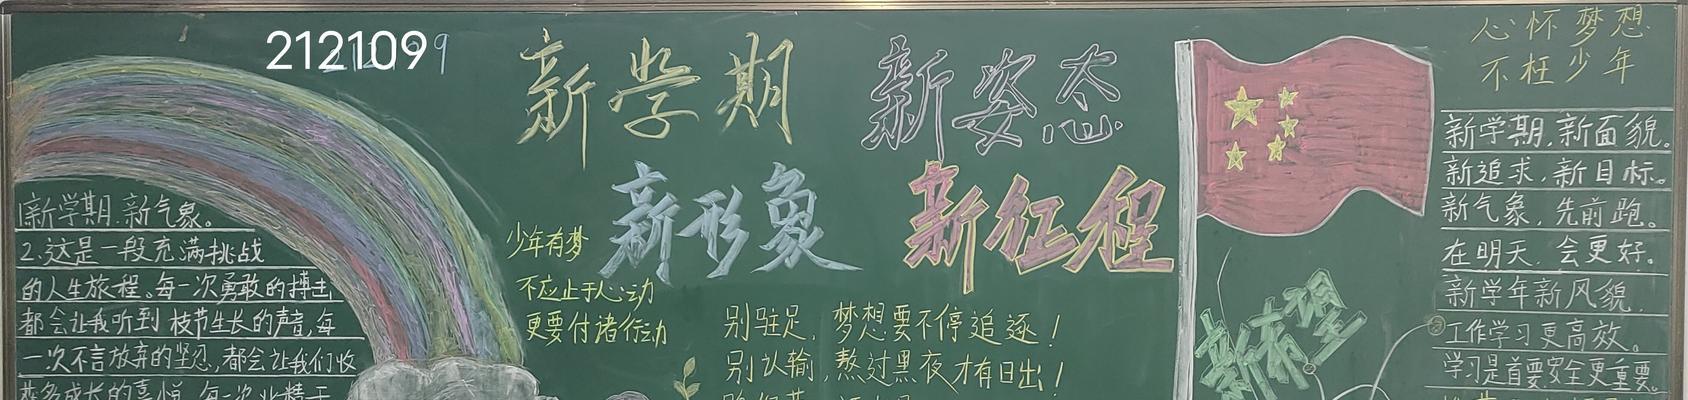 212109
新学期 新姿态
新形象 新征程
心怀梦想
不枉少年
1新学期.新气象。
2.这是一段充满挑战
的人生旅程。每一次勇敢的搏击
都会让我听到枝节生长的声音,每
一次不言放弃的坚忍,都会让我们收
少年有梦
不应止于心动
更要付诸行动
别驻足,梦想要不停追逐!
别认输,熬过黑夜才有日出!
新学期,新面貌。
新追求,新目标。
新气象,先前跑。
在明天,会更好。
新学年新风貌,
工作学习更高效。
学习是首要安全更重要。